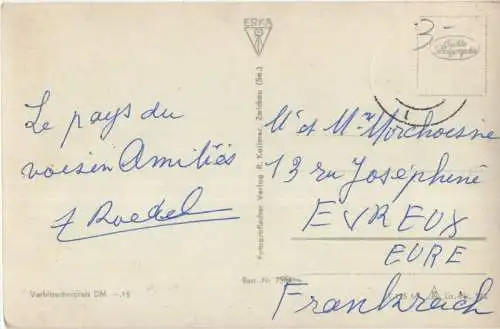 ERKA
3-
Echte Fotografie
Le pays du
voisin Amitiés
Fotografischer Verlag R. Kallmer, Zwickau (Sa.)
Verbraucherpreis DM -.15
Best.-Nr.
M et Mme
13 ru Joséphine
EVREUX
EURE
Frankreich